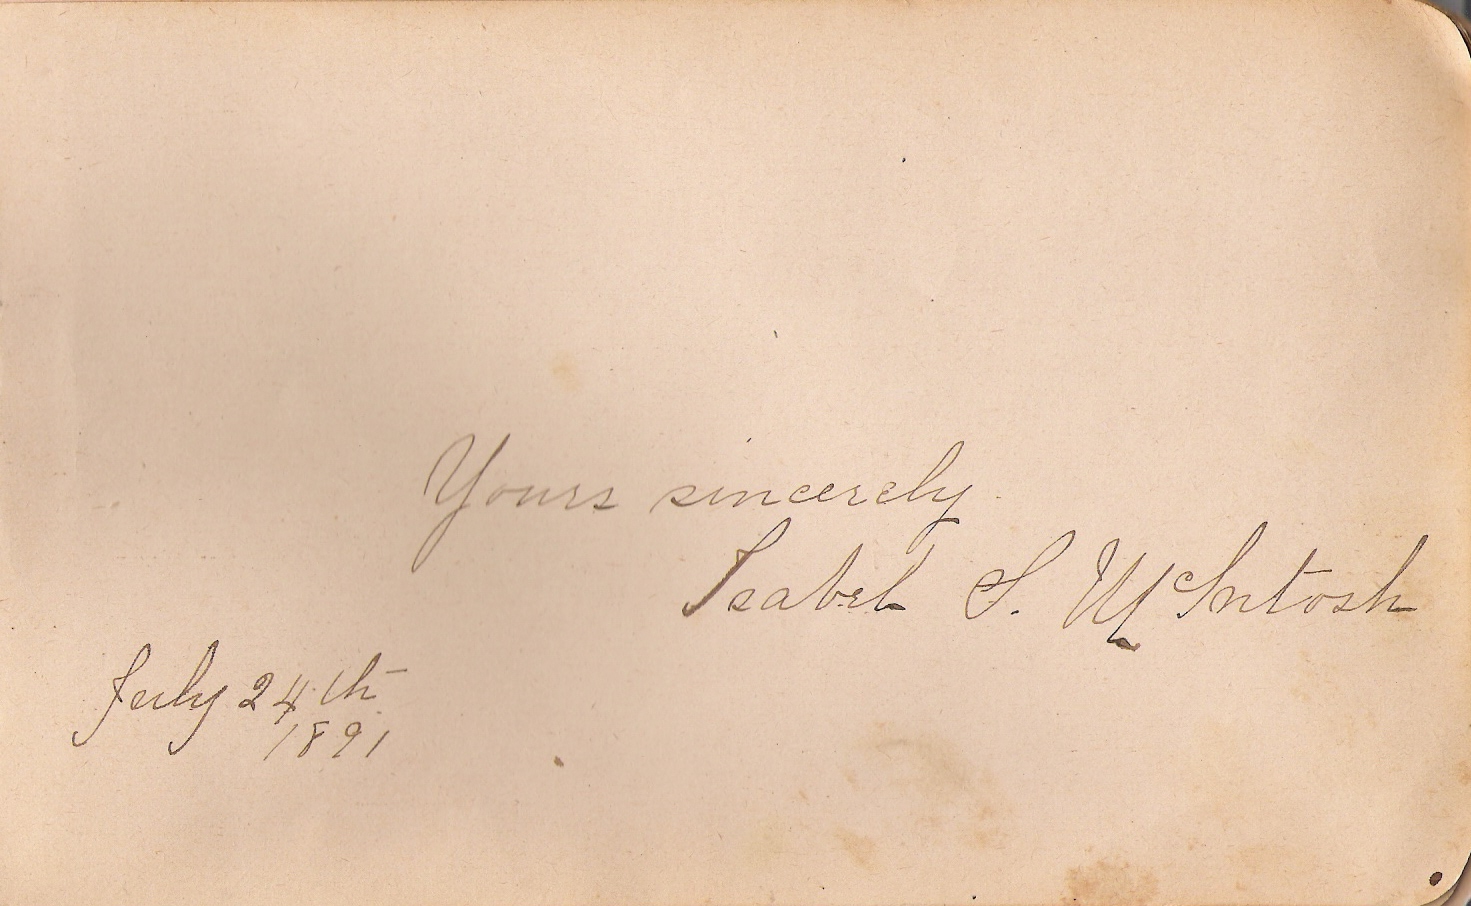 Yours sincerely
Isabel S. McIntosh
July 24th
1891